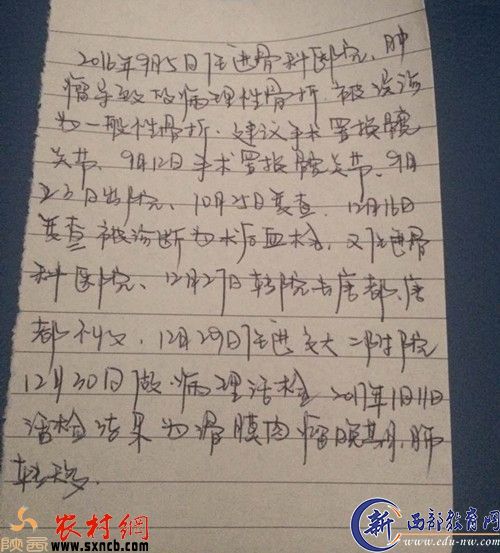 2016年9月5日住进骨科医院、肿
瘤导致的病理性骨折.被误诊
为一般性骨折.建议手术置换髋
关节、9月12日手术置换髋关节、9月
23日出院、10月25日复查.12月16日
复查被诊断为术后血栓,又住进骨
科医院、12月27日转院去唐都、唐
都不收、12月29日住进交大二附院
12月30日做病理活检 2017年1月11日
活检结果为滑膜肉瘤晚期,肺
转移.
陕西农村網
www.sxncb.com
新 西部教育网
www.edu-nw.com